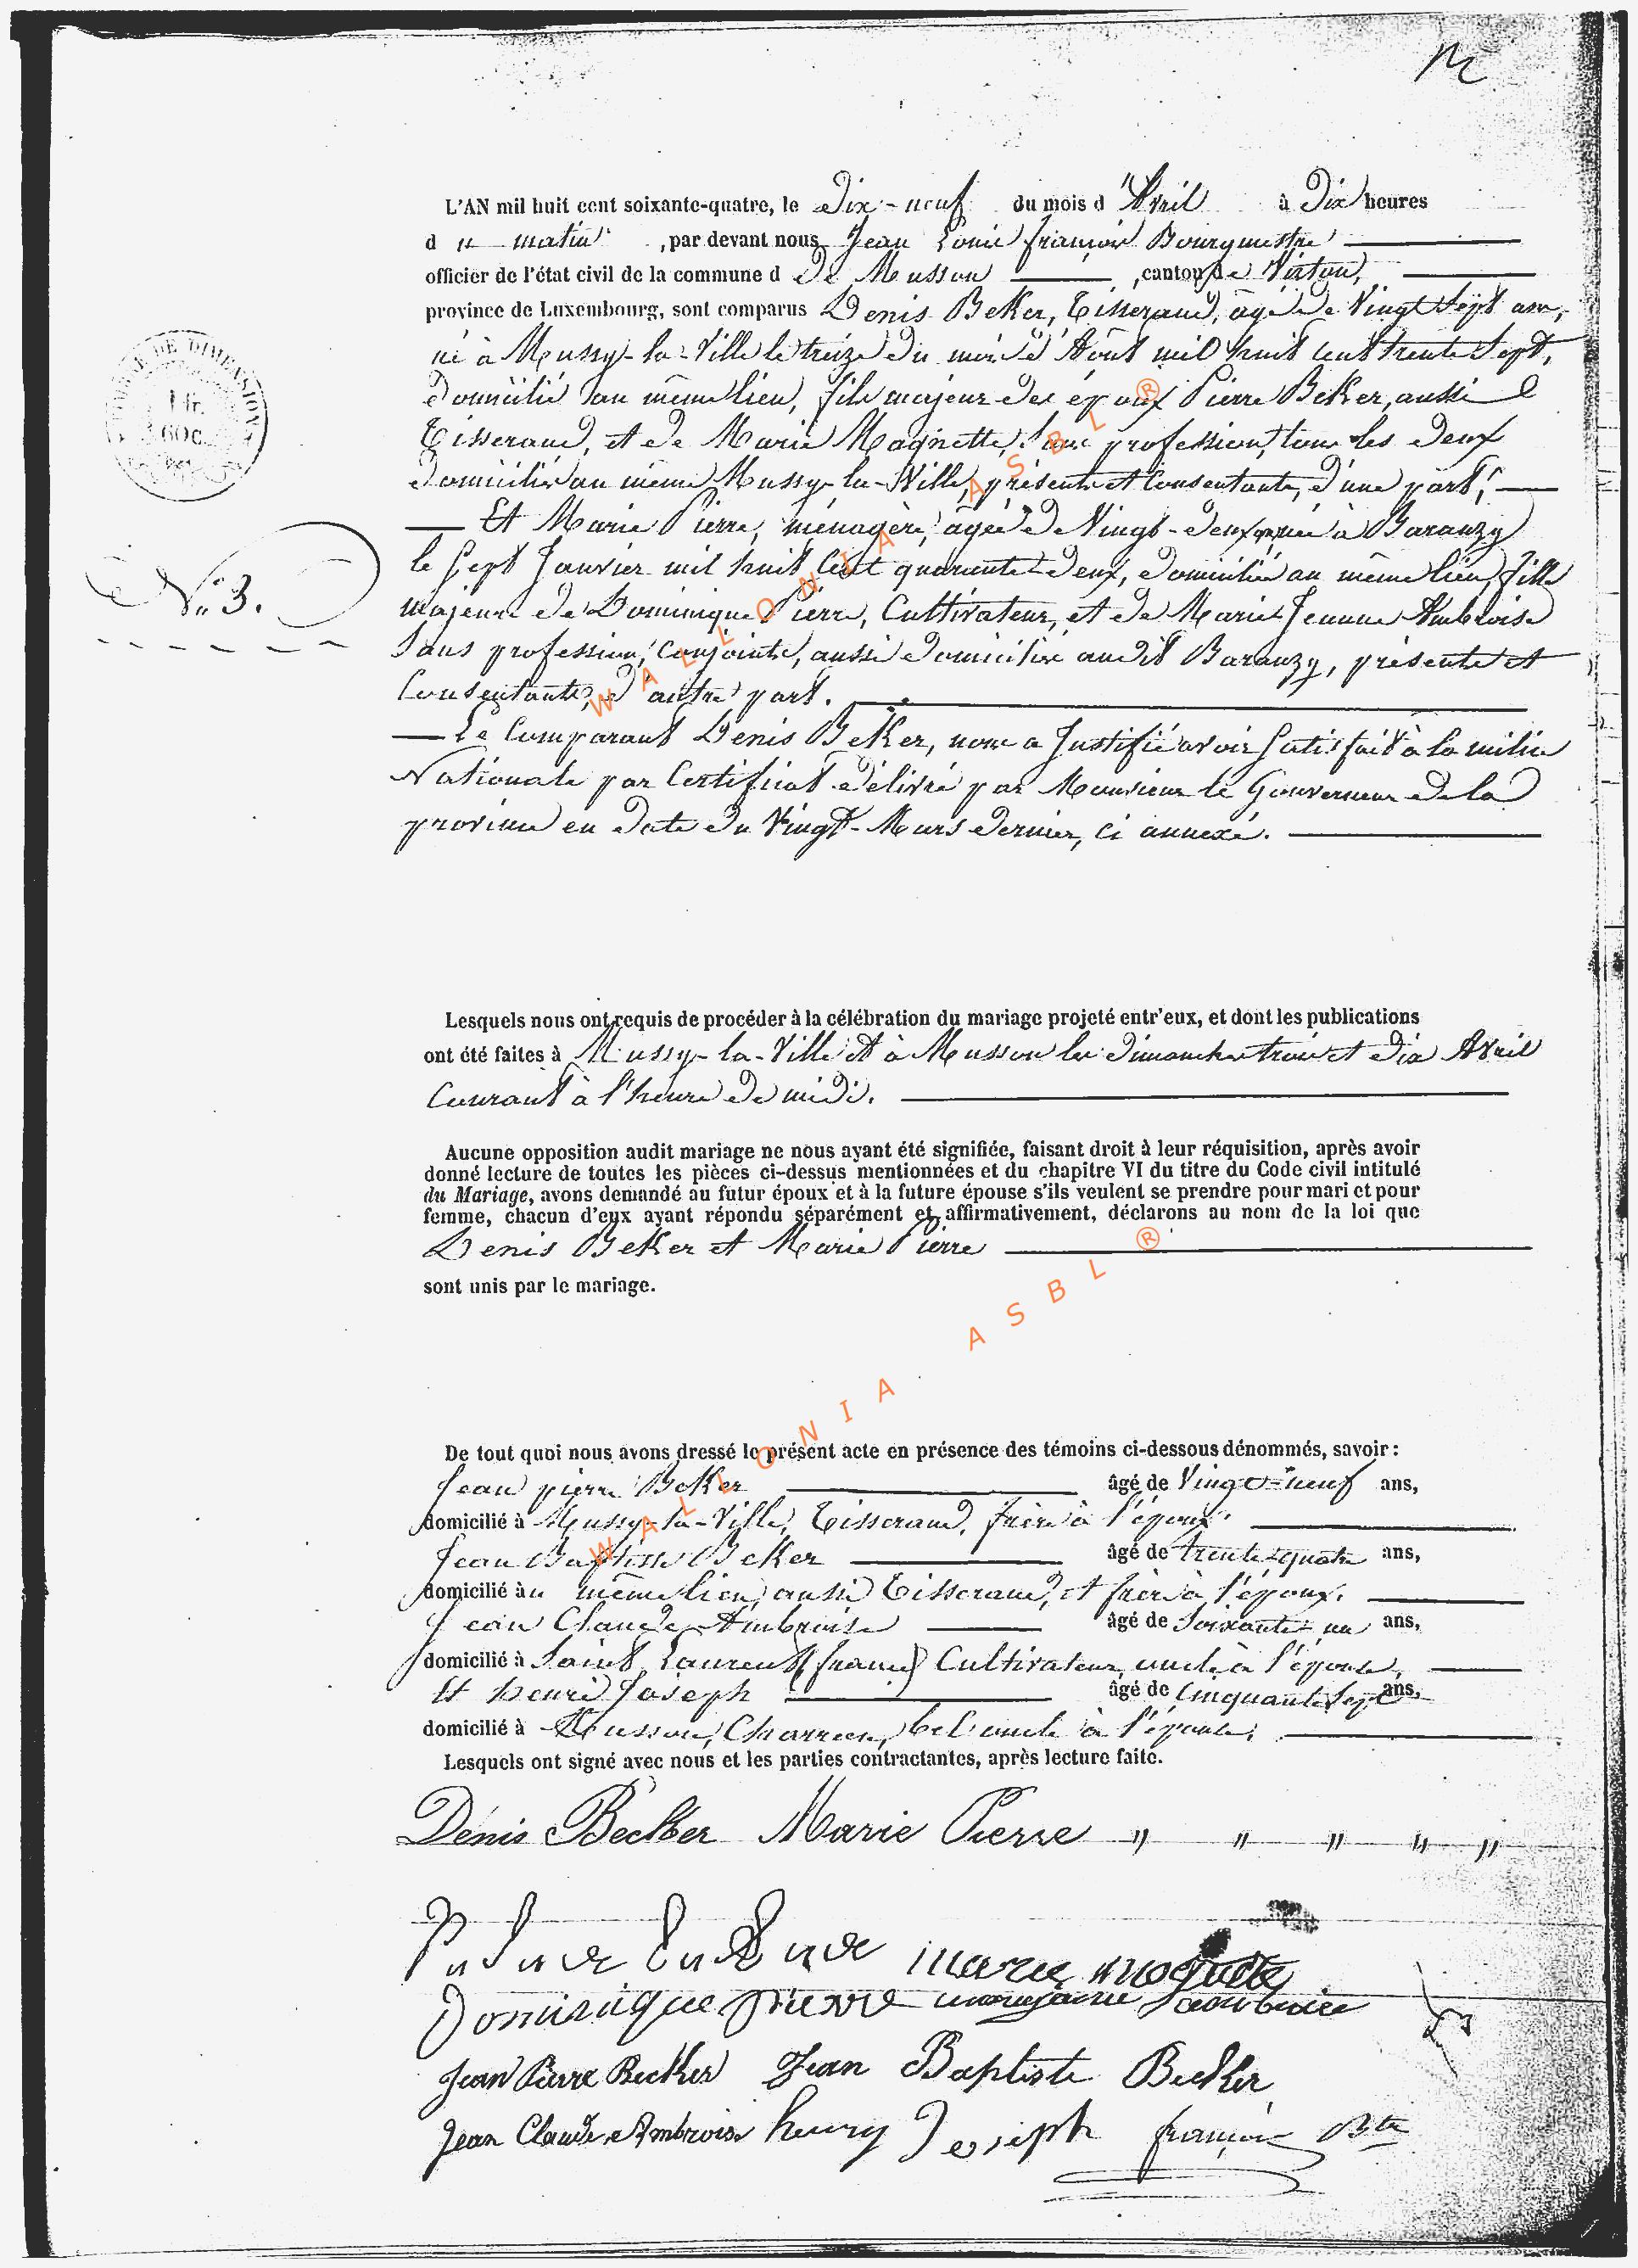 L'AN mil huit cent soixante-quatre, le Dix-neuf du mois d'Avril à Dix heures
d u matin, par devant nous Jean Louis françois Bourgmestre
officier de l'état civil de la commune d de Musson, canton de Virton,
province de Luxembourg, sont comparus Denis Beker, Tisserand, âgé de Vingt Sept ans,
né à Mussy-la-Ville le treize du mois d'Août mil huit cent trente Sept,
domicilié au même lieu, fils majeur des époux Pierre Beker, aussi
Tisserand, et de Marie Magnette, Sans profession, tous les deux
domiciliés au même Mussy-la-Ville, présents et Consentants, d'une part;
Et Marie Pierre, ménagère, âgée de Vingt-deux ans, née à Baranzy
le Sept Janvier mil huit Cent quarante-deux, domiciliée au même lieu, fille
majeure de Dominique Pierre, Cultivateur, et de Marie Jeanne Ambroise
Sans profession, Conjoints, aussi domiciliés audit Baranzy, présents et
Consentants, d'autre part.
Le Comparant Denis Beker, nous a Justifié avoir Satisfait à la milice
Nationale par Certificat délivré par Monsieur le Gouverneur de la
province en date du Vingt-Mars dernier, ci annexé.
N° 3.
1 fr.
60 c.
Lesquels nous ont requis de procéder à la célébration du mariage projeté entr'eux, et dont les publications
ont été faites à Mussy-la-Ville et à Musson les dimanches trois et dix Avril
Courant à l'heure de midi.
Aucune opposition audit mariage ne nous ayant été signifiée, faisant droit à leur réquisition, après avoir
donné lecture de toutes les pièces ci-dessus mentionnées et du chapitre VI du titre du Code civil intitulé
du Mariage, avons demandé au futur époux et à la future épouse s'ils veulent se prendre pour mari et pour
femme, chacun d'eux ayant répondu séparément et affirmativement, déclarons au nom de la loi que
Denis Beker et Marie Pierre
sont unis par le mariage.
De tout quoi nous avons dressé le présent acte en présence des témoins ci-dessous dénommés, savoir :
Jean pierre Beker âgé de Vingt-neuf ans,
domicilié à Mussy-la-Ville, Tisserand, frère à l'époux.
Jean Baptiste Beker âgé de trente-quatre ans,
domicilié àu même lieu, aussi Tisserand, et frère à l'époux.
Jean Claude Ambroise âgé de Soixante-un ans,
domicilié à Saint Laurent (france) Cultivateur, oncle à l'épouse,
Et henri Joseph âgé de Cinquante Sept ans,
domicilié à Musson, Charron, bel oncle à l'épouse.
Lesquels ont signé avec nous et les parties contractantes, après lecture faite.
Dénis Becker Marie Pierre " " " " "
marie magnette
Dominique pierre
Jean Pierre Becker Jean Baptiste Becker
Jean Claude Ambroise henry Joseph françois Bte
WALLONIA ASBL ®
WALLONIA ASBL ®